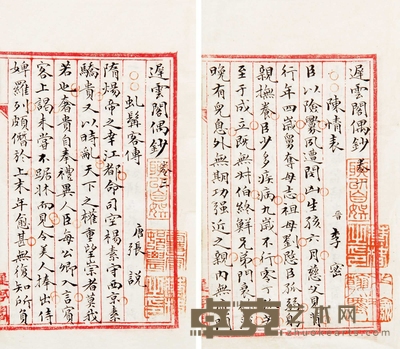 遲雲閣偶鈔 卷
陳情表
晉 李密
臣以險釁夙遭閔凶生孩六月慈父見背
行年四歲舅奪母志祖母劉愍臣孤弱躬
親撫養臣少多疾病九歲不行零丁
至于成立既無叔伯終鮮兄弟門衰
晚有兒息外無期功強近之親內無
遲雲閣偶鈔 卷三
虬髯客傳
唐 張說
隋煬帝之幸江都命司空楊素守西京素
驕貴又以時亂天下之權重望崇者莫我
若也奢貴自奉禮異人臣每公卿入言賓
客上謁未嘗不踞牀而見令美人捧出侍
婢羅列頗僭於上末年愈甚無復知所負
艺术网